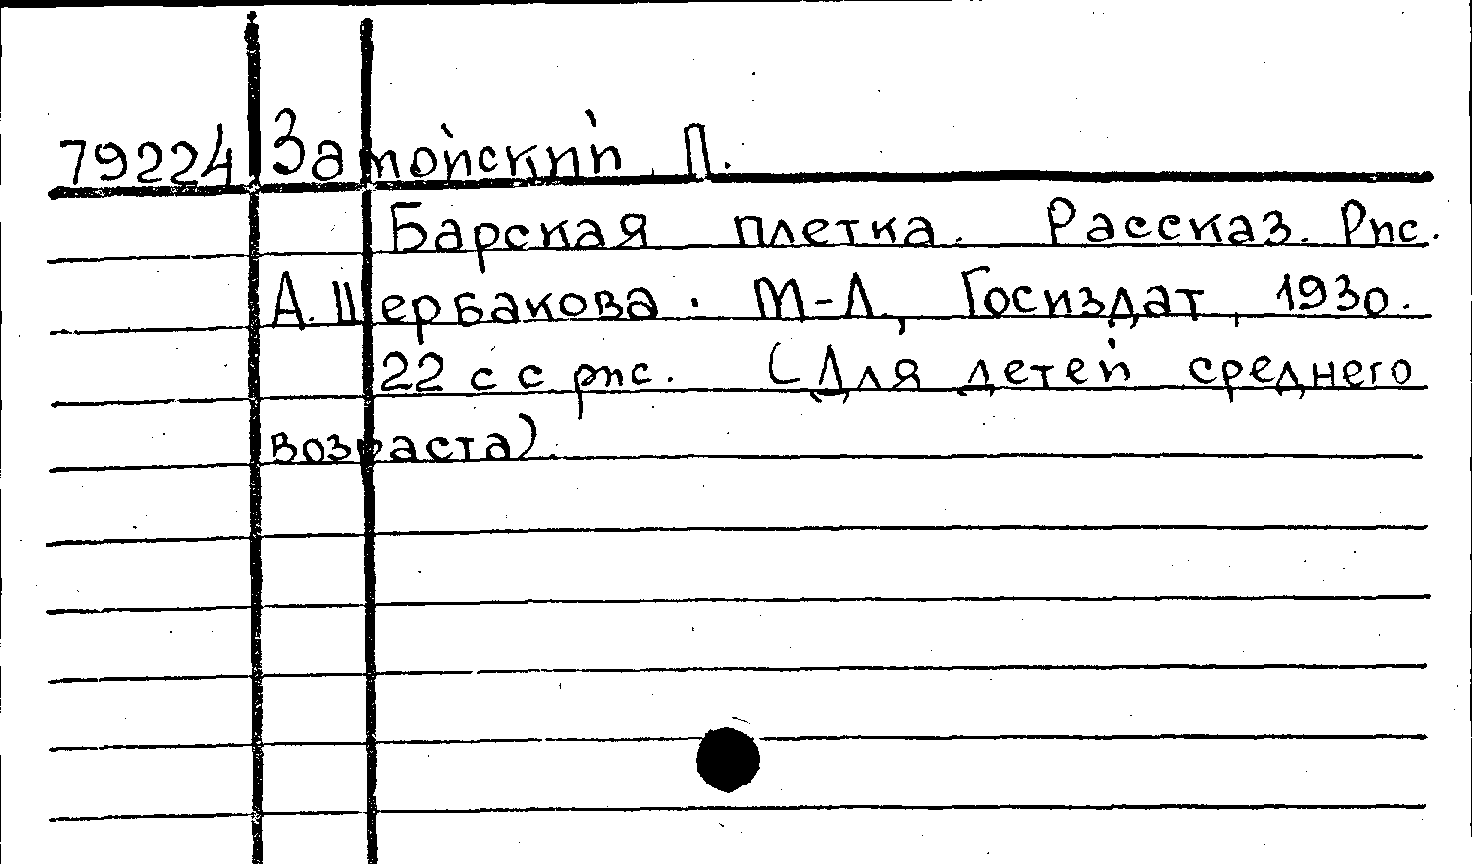 79224 Замойский П.
Барская плетка. Рассказ. Рис.
А. Щербакова. М-Л., Госиздат, 1930.
22 с с рис. (Для детей среднего
возраста).